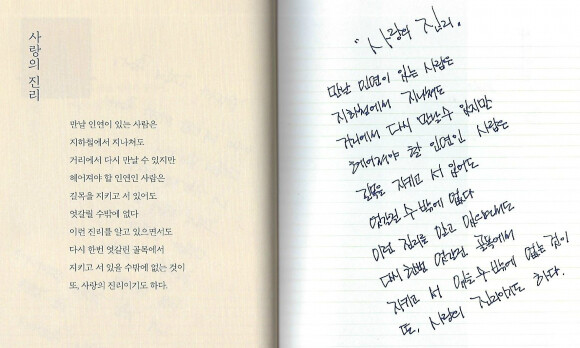 사랑의 진리
만날 인연이 있는 사람은
지하철에서 지나쳐도
거리에서 다시 만날 수 있지만
헤어져야 할 인연인 사람은
길목을 지키고 서 있어도
엇갈릴 수밖에 없다
이런 진리를 알고 있으면서도
다시 한번 엇갈린 골목에서
지키고 서 있을 수밖에 없는 것이
또, 사랑의 진리이기도 하다.
" 사랑의 진리.
만날 인연이 있는 사람은
지하철에서 지나쳐도
거리에서 다시 만날 수 있지만
헤어져야 할 인연인 사람은
길목을 지키고 서 있어도
엇갈릴 수 밖에 없다
이런 진리를 알고 있으면서도
다시 한번 엇갈린 골목에서
지키고 서 있을 수 밖에 없는 것이
또, 사랑의 진리이기도 하다.